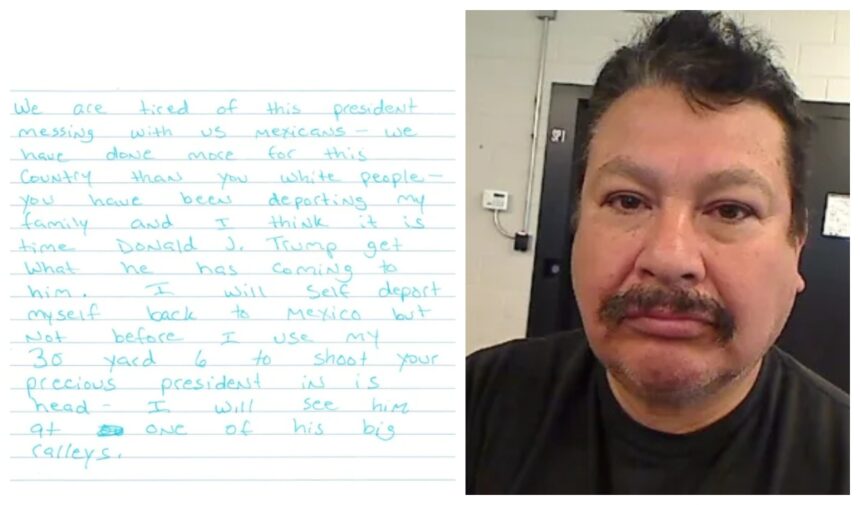 We are tired of this president
messing with us Mexicans - we
have done more for this
Country than you white people -
you have been deporting my
family and I think it is
time Donald J. Trump get
what he has coming to
him. I will self deport
myself back to Mexico but
not before I use my
30 yard 6 to shoot your
precious president in is
head - I will see him
at one of his big
ralleys.
SP1